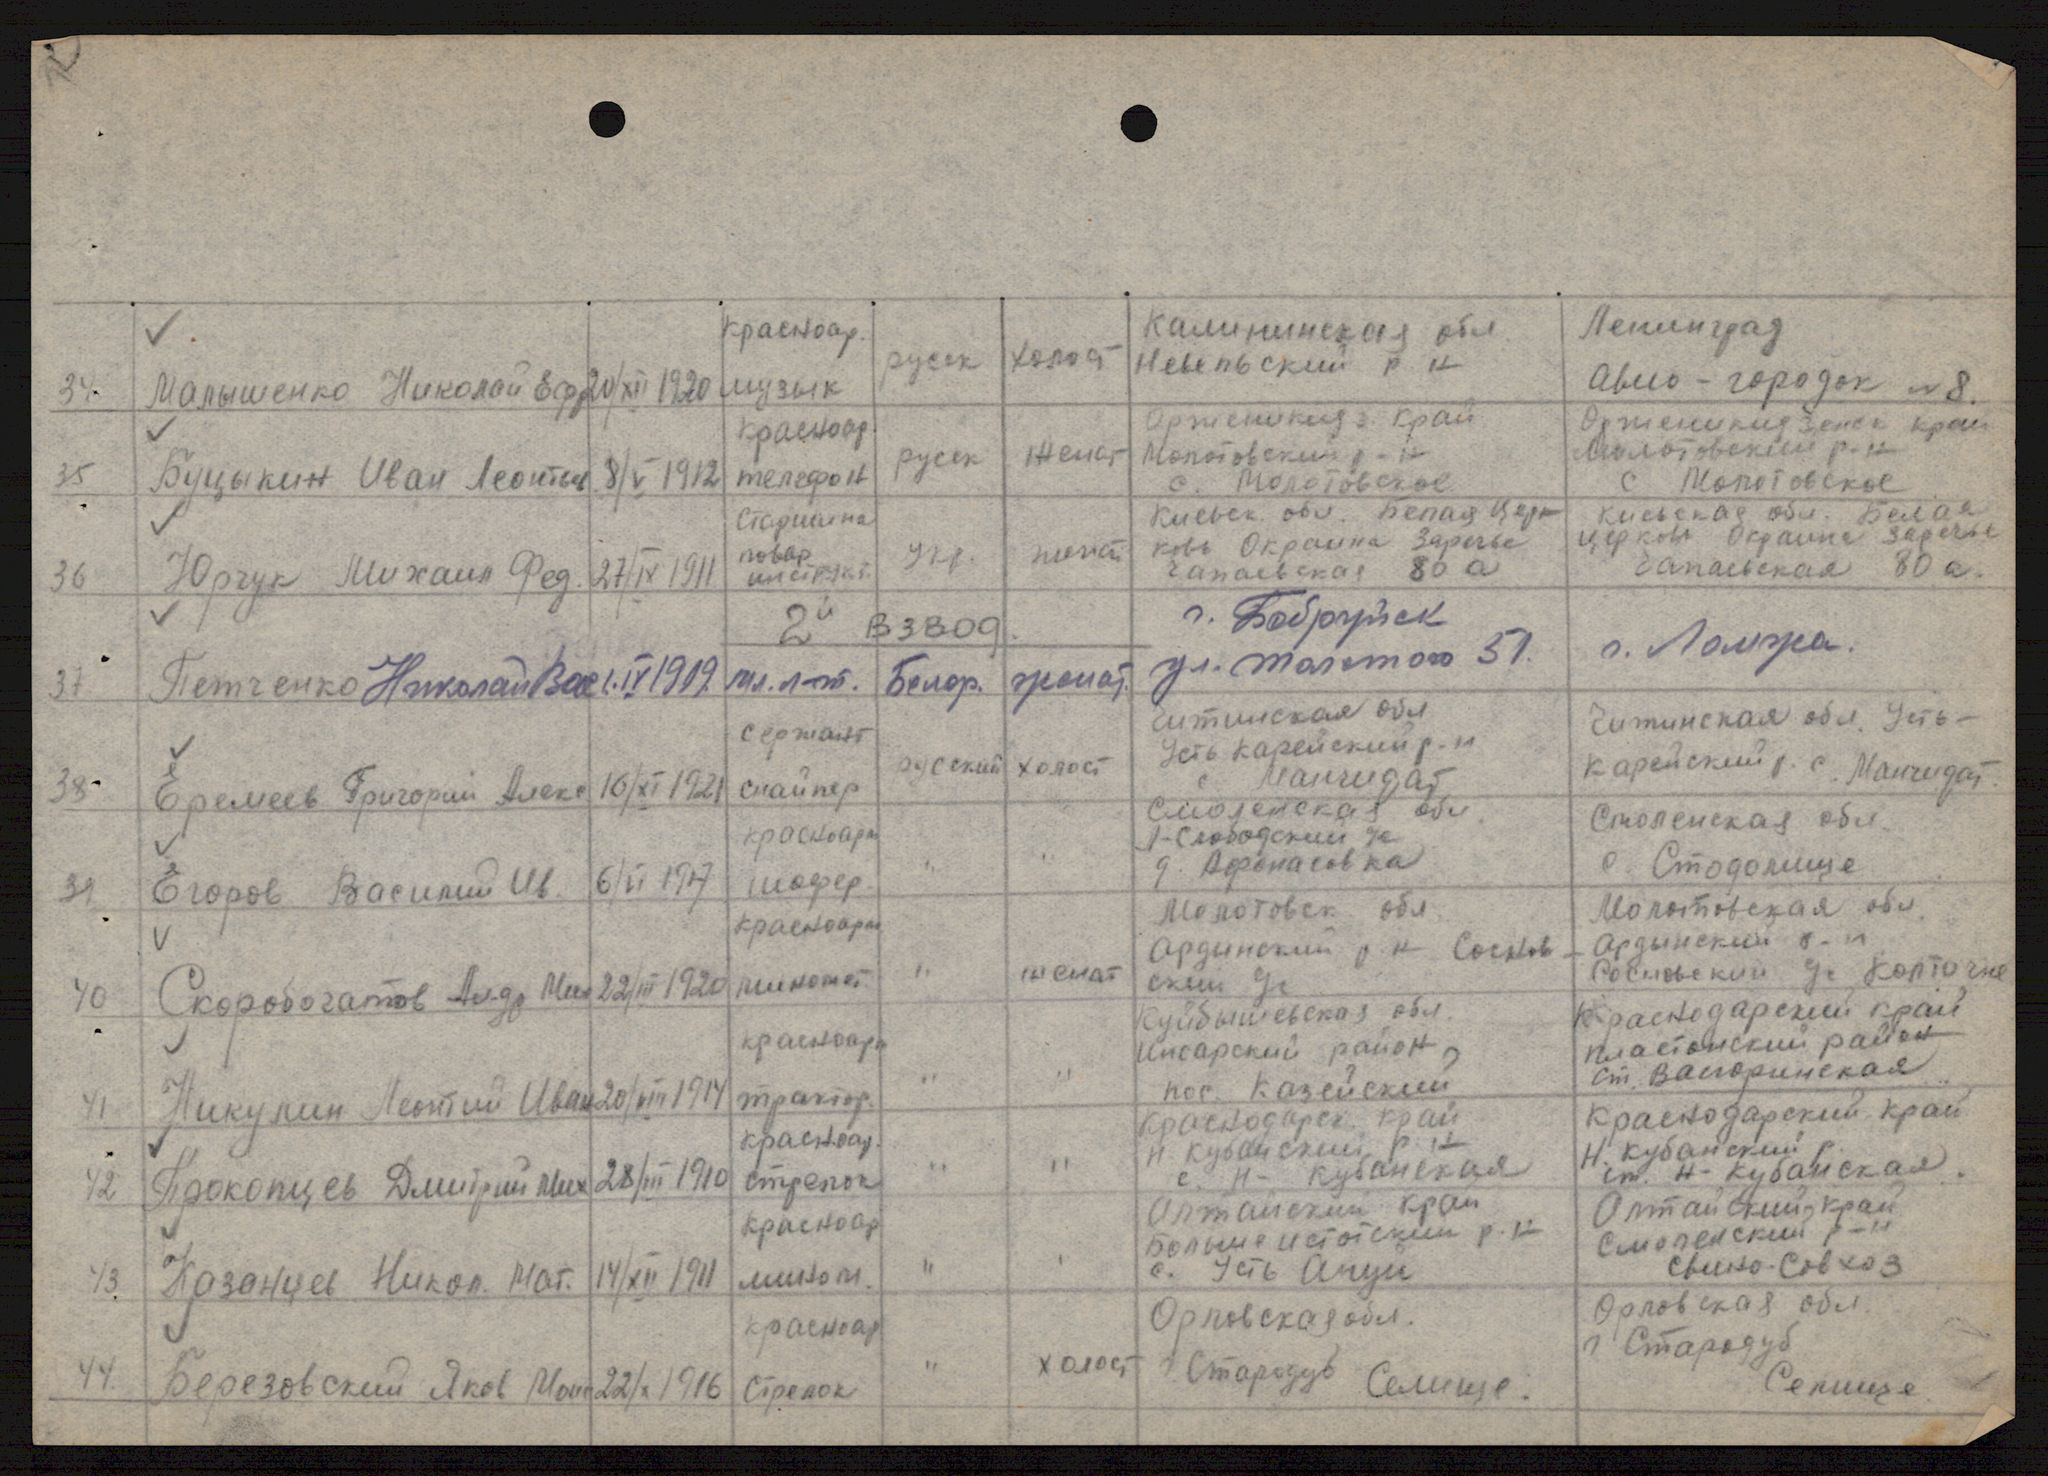 красноар. Калининская обл Ленинград
34. Малышенко Николай Ефр 20/XII 1920 музык русск холост Невельский р н Авио - городок №8.
красноар. Орженикидз. край Орженикидзенск край
35 Буцыкин Иван Леонтьев 8/V 1912 телефон русск женат Молотовский р-н Молотовский р-н
с. Молотовское с Молотовское
Старшина Киевск. обл. Белая Цер Киевская обл. Белая
36 Юрчук Михаил Фед. 27/IX 1911 повар укр. женат ковь Окраина Заречье церковь Окраина Заречье
инструкт. Чапаевская 80 а Чапаевская 80 а.
2й взвод. г. Бобруйск
37 Петченко Николай Вас 1.IV 1919. мл. л-т. Белор. женат. ул. Толстого 51. г. Ломжа.
сержант Читинская обл Читинская обл. Усть-
38. Еремеев Григорий Алекс 16/XI 1921 снайпер русский холост Усть Карейский р-н Карейский р. с. Манчидат.
с Манчидат
красноарм Смоленская обл. Смоленская обл.
39 Егоров Василий Ив. 6/VI 1917 шофер. " " -Слободский д. Афонасовка с. Стодолище
красноарм Молотовск обл. Молотовская обл.
40 Скоробогатов Алдр Мих 22/III 1920 миномет. " женат Ардинский р н Соснов- Ардынский р-н
ский с/с Сосновский с/с
красноарм Куйбышевская обл. Краснодарский край
41 Никулин Леонтий Иван 20/VIII 1914 трактор. " " Инсарский район район
пос. Казейский ст.
красноар. Краснодарск. край Краснодарский край
42 Прокопцев Дмитрий Мих 28/III 1910 стрелок " " Н. Кубанский р. н Н. Кубанский р.
с. Н- Кубанская ст. Н- Кубанская.
красноар Алтайский край Алтайский край
43 Казанцев Никол. Мат. 14/XII 1911 мином. " " Большеистокский р.-н Смоленский р-н
с. Усть Ануй свино-совхоз
красноар Орловская обл. Орловская обл.
44. Березовский Яков Моис 22/X 1916 стрелок " холост г Стародуб г Стародуб
Селище. Селище